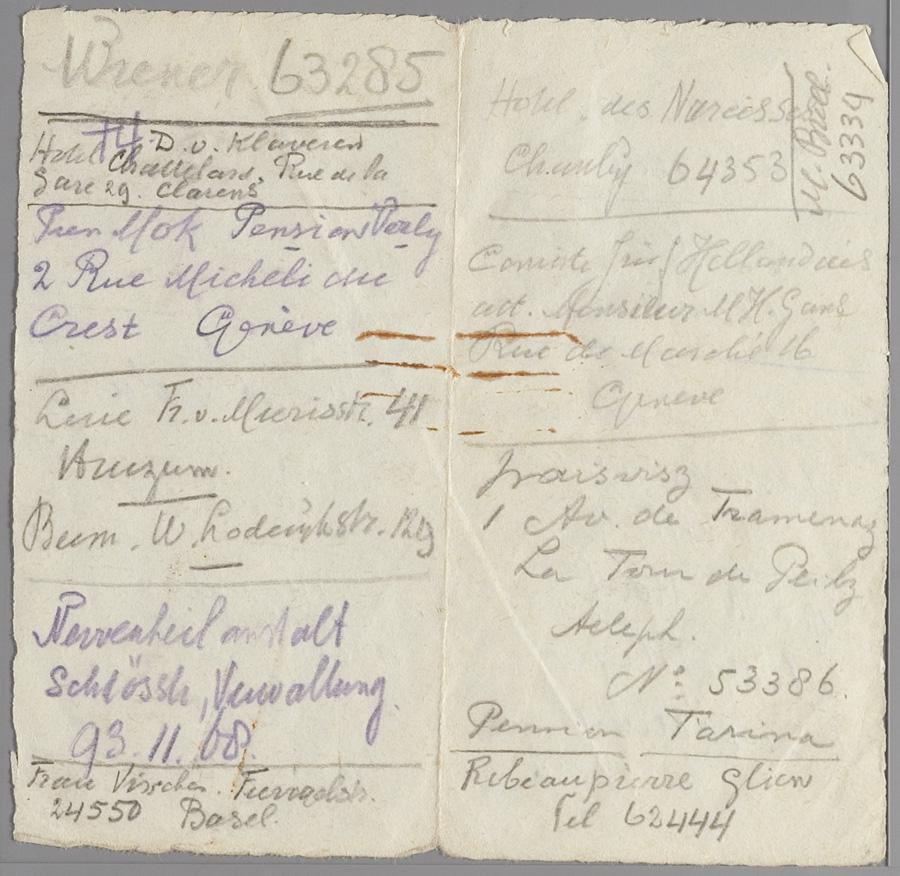 Wiener 63285
D. v. Klaveren
Hotel Chattelard, Rue de la
Gare 29. Clarens
Mok Pension Verly
2 Rue Micheli du
Crest Genève
Fr. v. Mierisstr. 41
W. Lodewijkstr.
Nervenheilanstalt
Schlössli, Verwaltung
93.11.08.
Frau Vischer.
24550 Basel.
Hotel des Narcisses
64353
63334
Comité Hollandais
att. Monsieur M H. Gans
Rue du Marché 16
Genève
1 Av. de Tramenaz
La Tour de Peilz
Teleph.
No: 53386.
Pension Tarina
Ribeaupierre Glion
Tel 62444